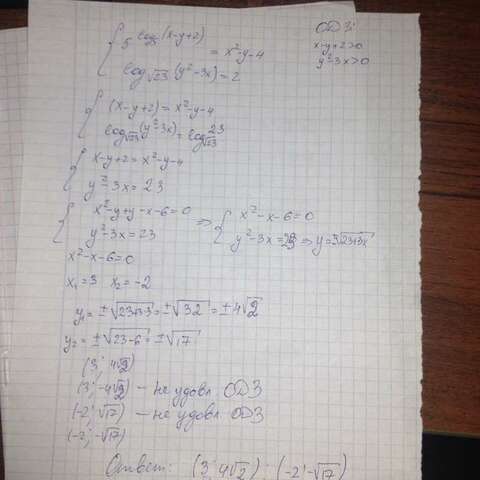 { 5^log₅(x-y+2) = x²-y-4
log_√23 (y²-3x) = 2
ОДЗ:
x-y+2>0
y²-3x>0
{ (x-y+2) = x²-y-4
log_√23 (y²-3x) = log_√23 23
{ x-y+2 = x²-y-4
y²-3x = 23
{ x²-y+y-x-6=0 ⇒ { x²-x-6=0
y²-3x=23 y²-3x=23 ⇒ y=±√23+3x
x²-x-6=0
x₁=3 x₂=-2
y₁=±√23+3·3=±√32=±4√2
y₂=±√23-6=±√17
(3; 4√2)
(3; -4√2) – не удовл. ОДЗ
(-2; √17) – не удовл ОДЗ
(-2; -√17)
Ответ: (3; 4√2); (-2; -√17)